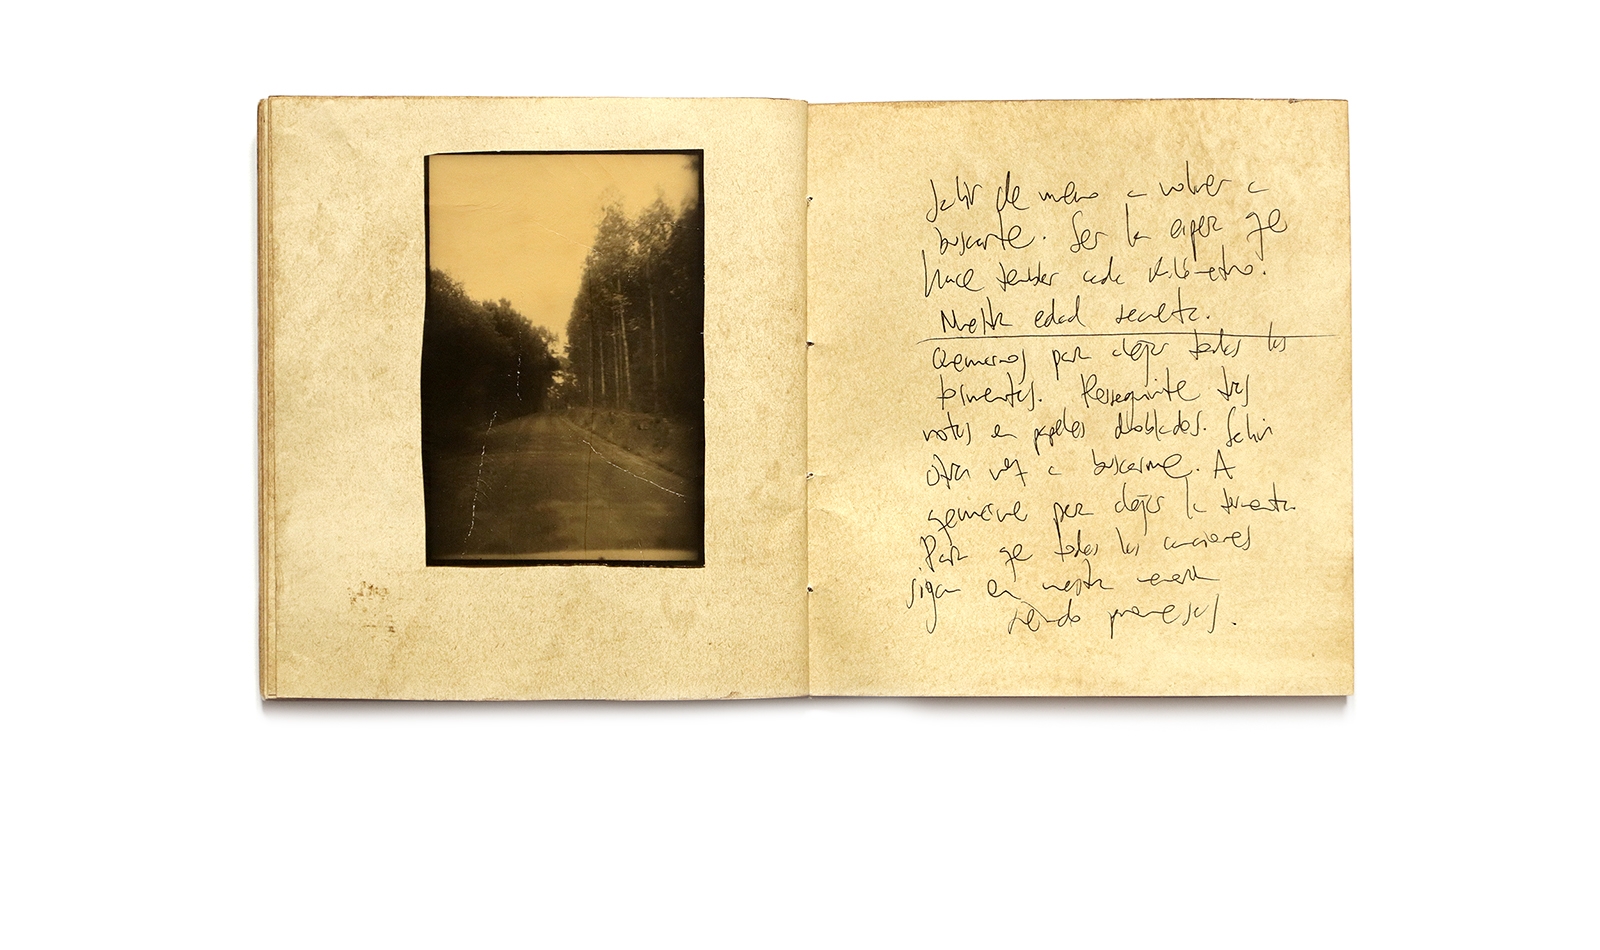 Salir de nuevo a volver a
buscarte. Ser la espera que
hace temblar cada kilómetro.
Nuestra edad secreta.
Quemarnos para alejar todas las
tormentas. Perseguirte tras
notas en papeles doblados. Salir
otra vez a buscarme. A
quemarme para alejar la tormenta.
Para que todas las canciones
sigan en nuestra
siendo promesas.